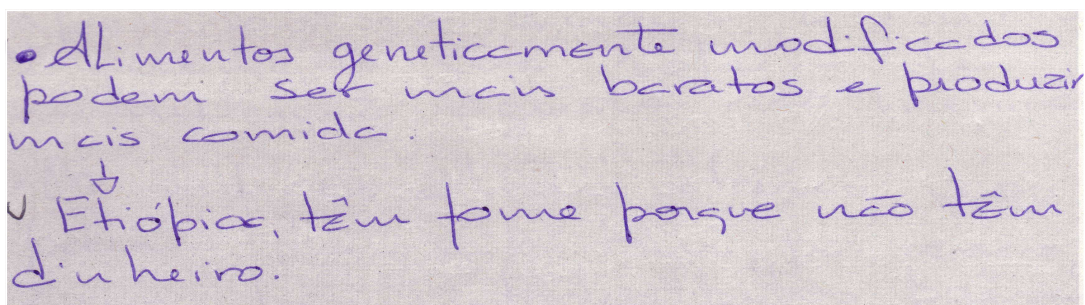 • Alimentos geneticamente modificados
podem ser mais baratos e produzir
mais comida.
↓
Etiópia, têm fome porque não têm
dinheiro.